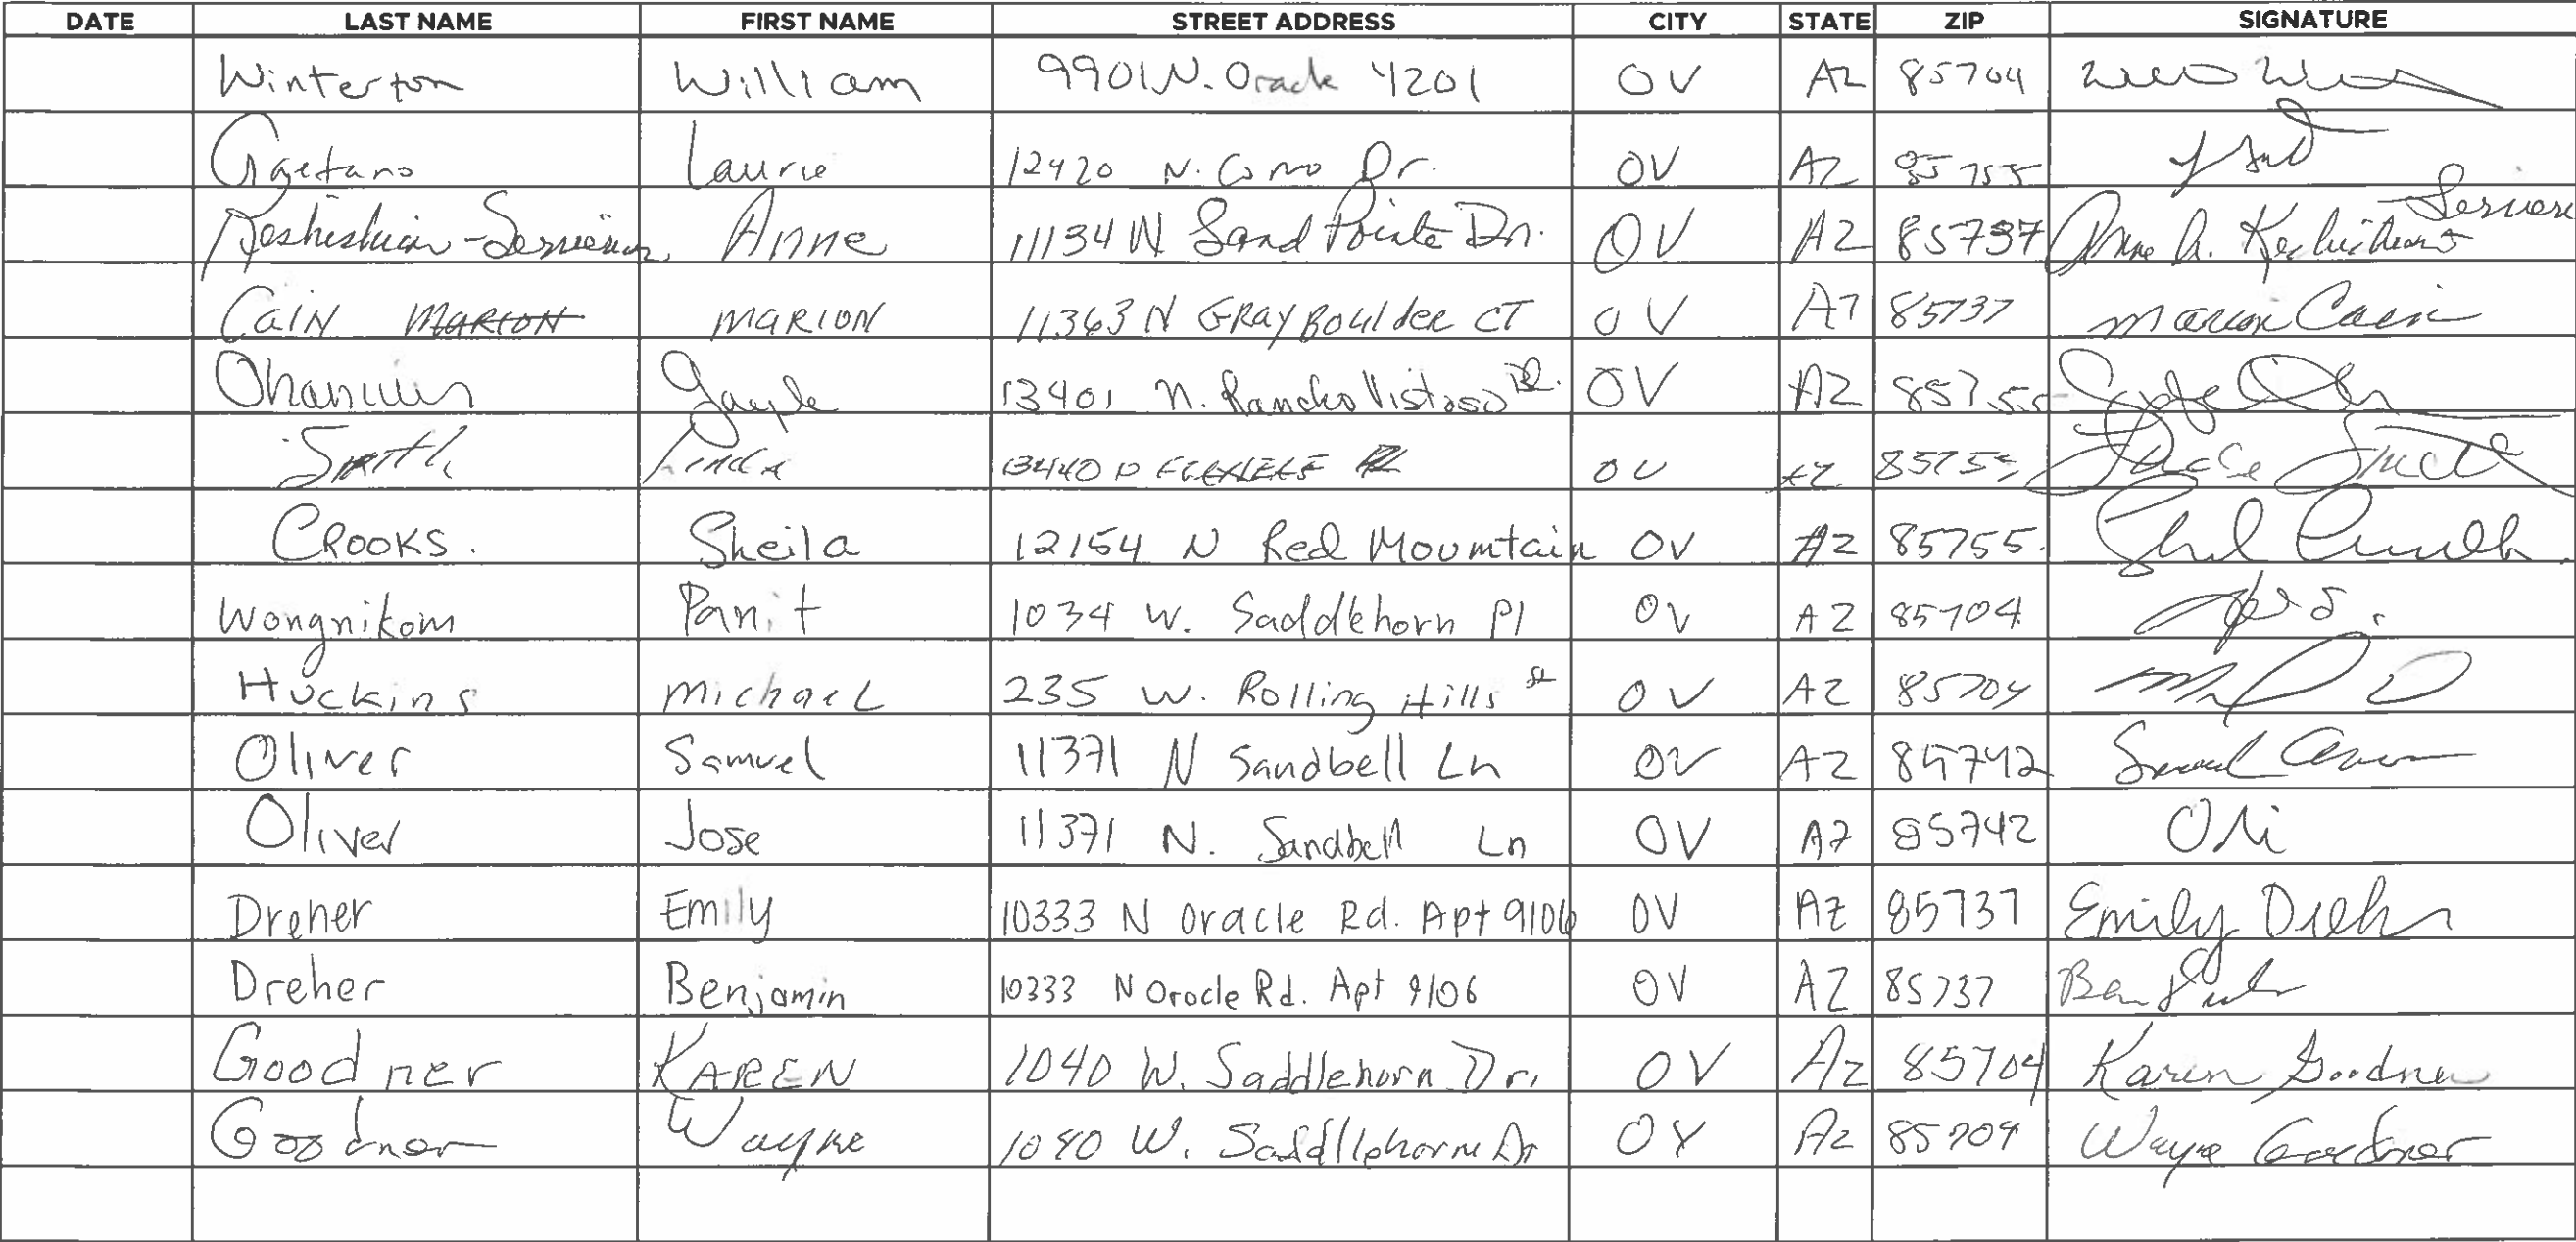 DATE LAST NAME FIRST NAME STREET ADDRESS CITY STATE ZIP SIGNATURE
Winterton William 9901 N. Oracle 4201 OV AZ 85704
Gaetano Laurie 12420 N. Como Dr. OV AZ 85755
Keshishian- Anne 11134 N Sand Pointe Dr. OV AZ 85737 Anne A.
Cain Marion MARION 11363 N GRAY BOULDER CT OV AZ 85737 Marion Cain
Gayle 13401 N. Rancho Vistoso OV AZ 85755
Smith Linda 13440 OV AZ 85755
CROOKS. Sheila 12154 N Red Mountain OV AZ 85755.
Wongnikom Panit 1034 W. Saddlehorn Pl OV AZ 85704
Huckins Michael 235 W. Rolling Hills st OV AZ 85704
Oliver Samuel 11371 N Sandbell Ln OV AZ 85742 Samuel
Oliver Jose 11371 N. Sandbell Ln OV AZ 85742 Oli
Dreher Emily 10333 N Oracle Rd. Apt 9106 OV AZ 85737 Emily Dreher
Dreher Benjamin 10333 N Oracle Rd. Apt 9106 OV AZ 85737 Ben
Goodner KAREN 1040 W. Saddlehorn Dr. OV AZ 85704 Karen Goodner
Goodner Wayne 1040 W. Saddlehorn Dr OV AZ 85704 Wayne Goodner